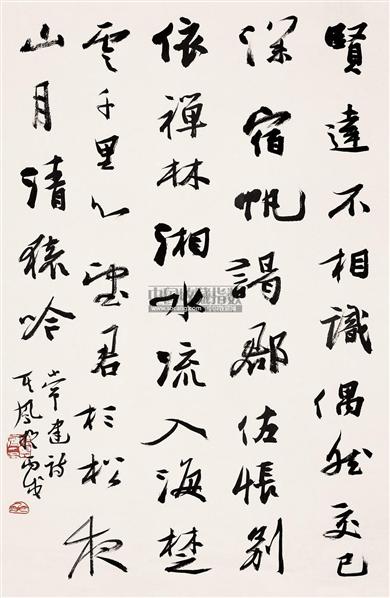 賢達不相識偶然交已
深宿帆謁郡佐悵別
依禪林湘水流入海楚
雲千里心望君杉松夜
山月清猿吟
常建詩